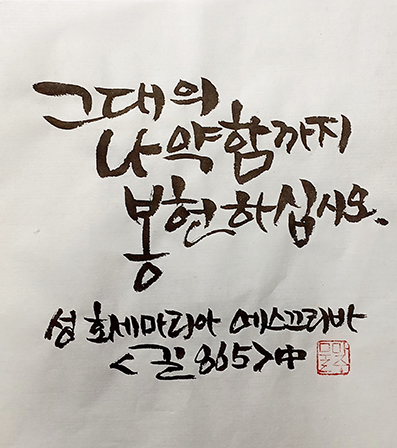 그대의
나약함까지
봉헌하십시오.
성 호세마리아 에스끄리바
<길 865>中